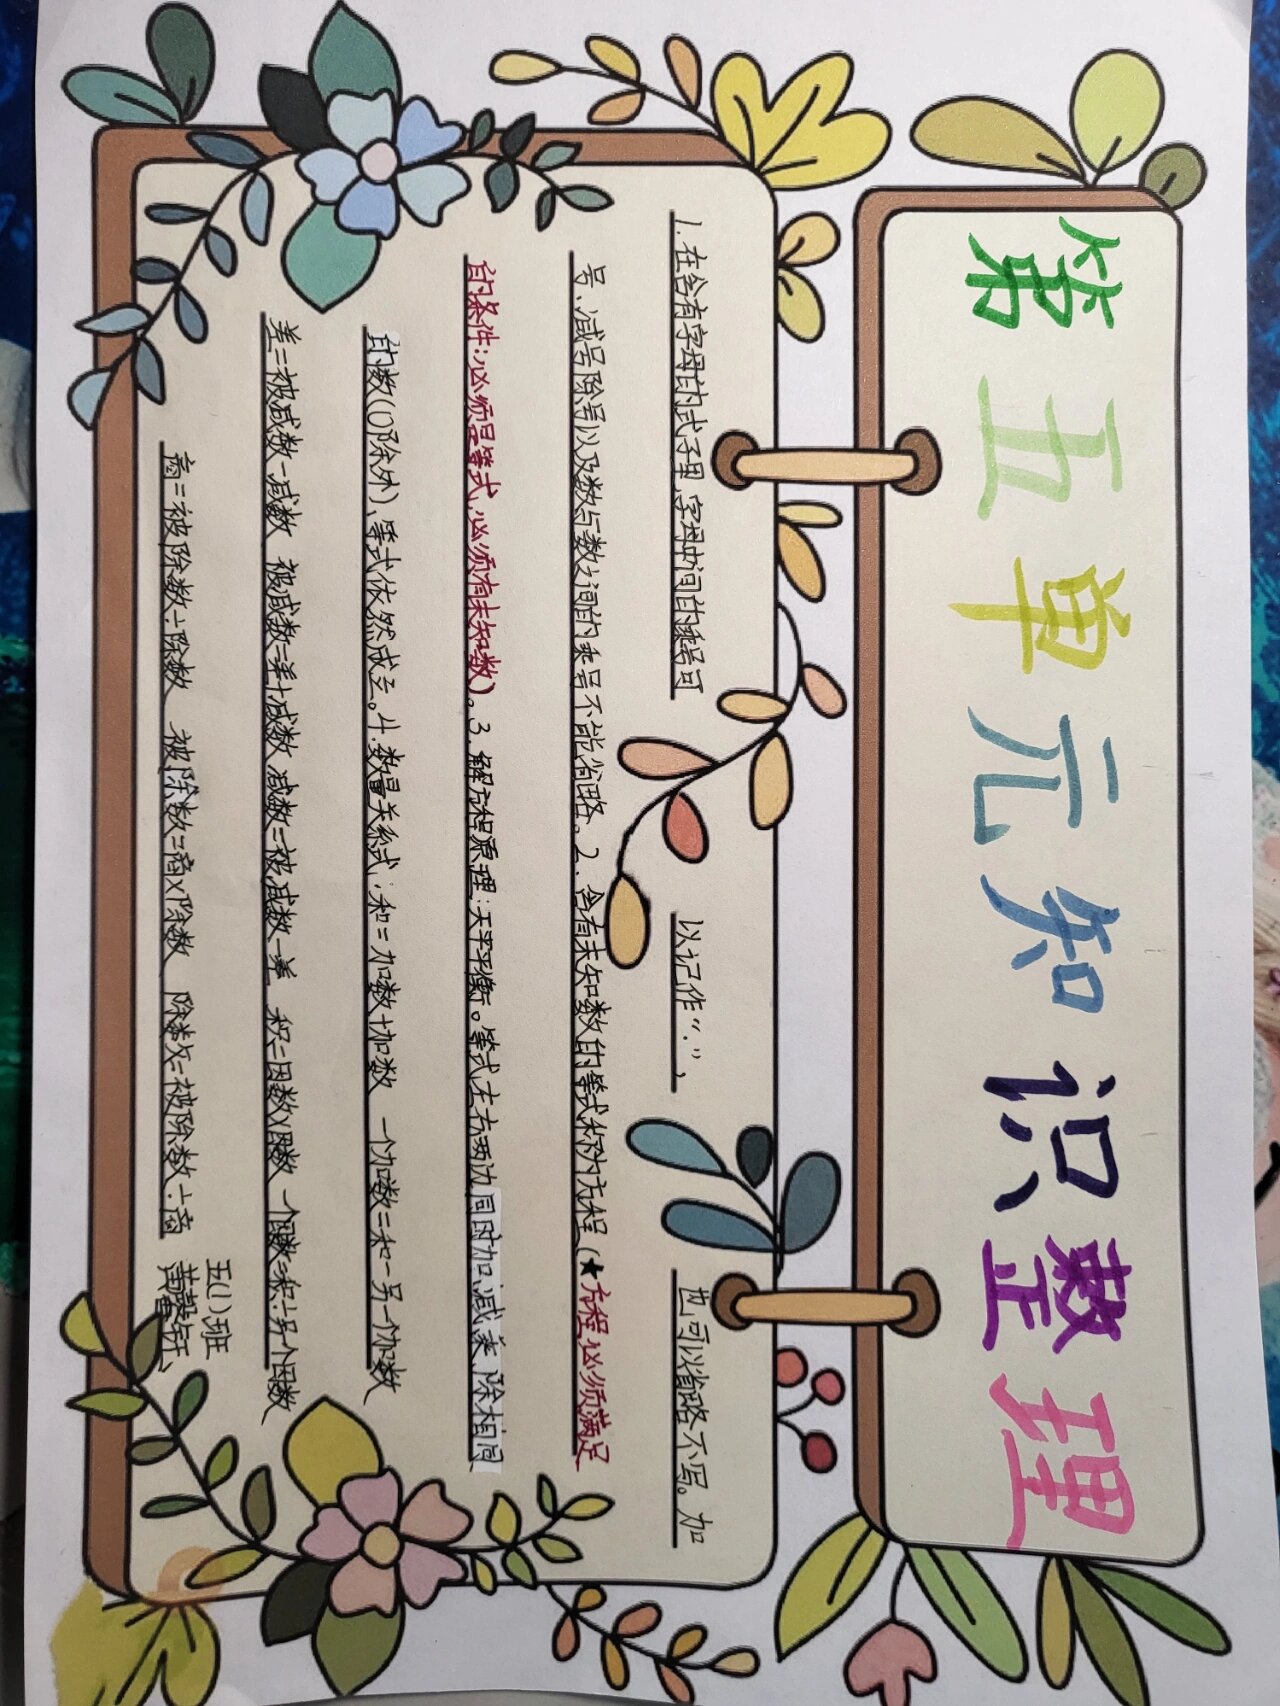 第五单元知识整理
1.在含有字母的式子里,字母中间的乘号可以记作“·”,也可以省略不写。加
号、减号除号以及数与数之间的乘号不能省略。2.含有未知数的等式称为方程(★方程必须满足
的条件:必须是等式,必须有未知数)。3.解方程原理:天平平衡。等式左右两边同时加、减、乘、除相同
的数(0除外),等式依然成立。4.数量关系式:和=加数+加数 一个加数=和-另一个加数
差=被减数-减数 被减数=差+减数 减数=被减数-差 积=因数×因数 一个因数=积÷另一个因数
商=被除数÷除数 被除数=商×除数 除数=被除数÷商
五(1)班